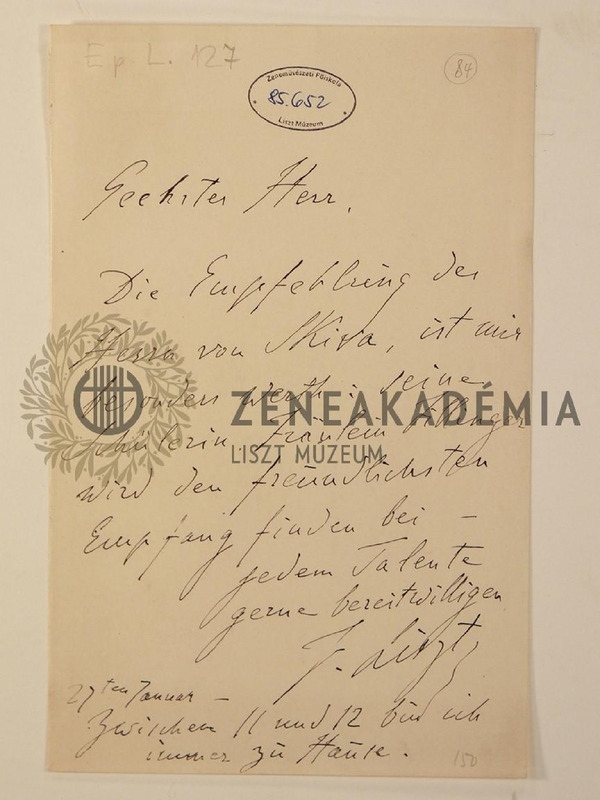 Ep. L. 127
84
Zeneművészeti Főiskola
85.652
Liszt Múzeum
Geehrter Herr,
Die Empfehlung des
Herrn von Skiva, ist mir
besonders werth; seine
Schülerin, Fräulein
wird den freundlichsten
Empfang finden bei –
jedem Talente
gerne bereitwilligen
F. Liszt
27ten Januar –
Zwischen 11 und 12 bin ich
immer zu Hause.
150
ZENEAKADÉMIA
LISZT MÚZEUM